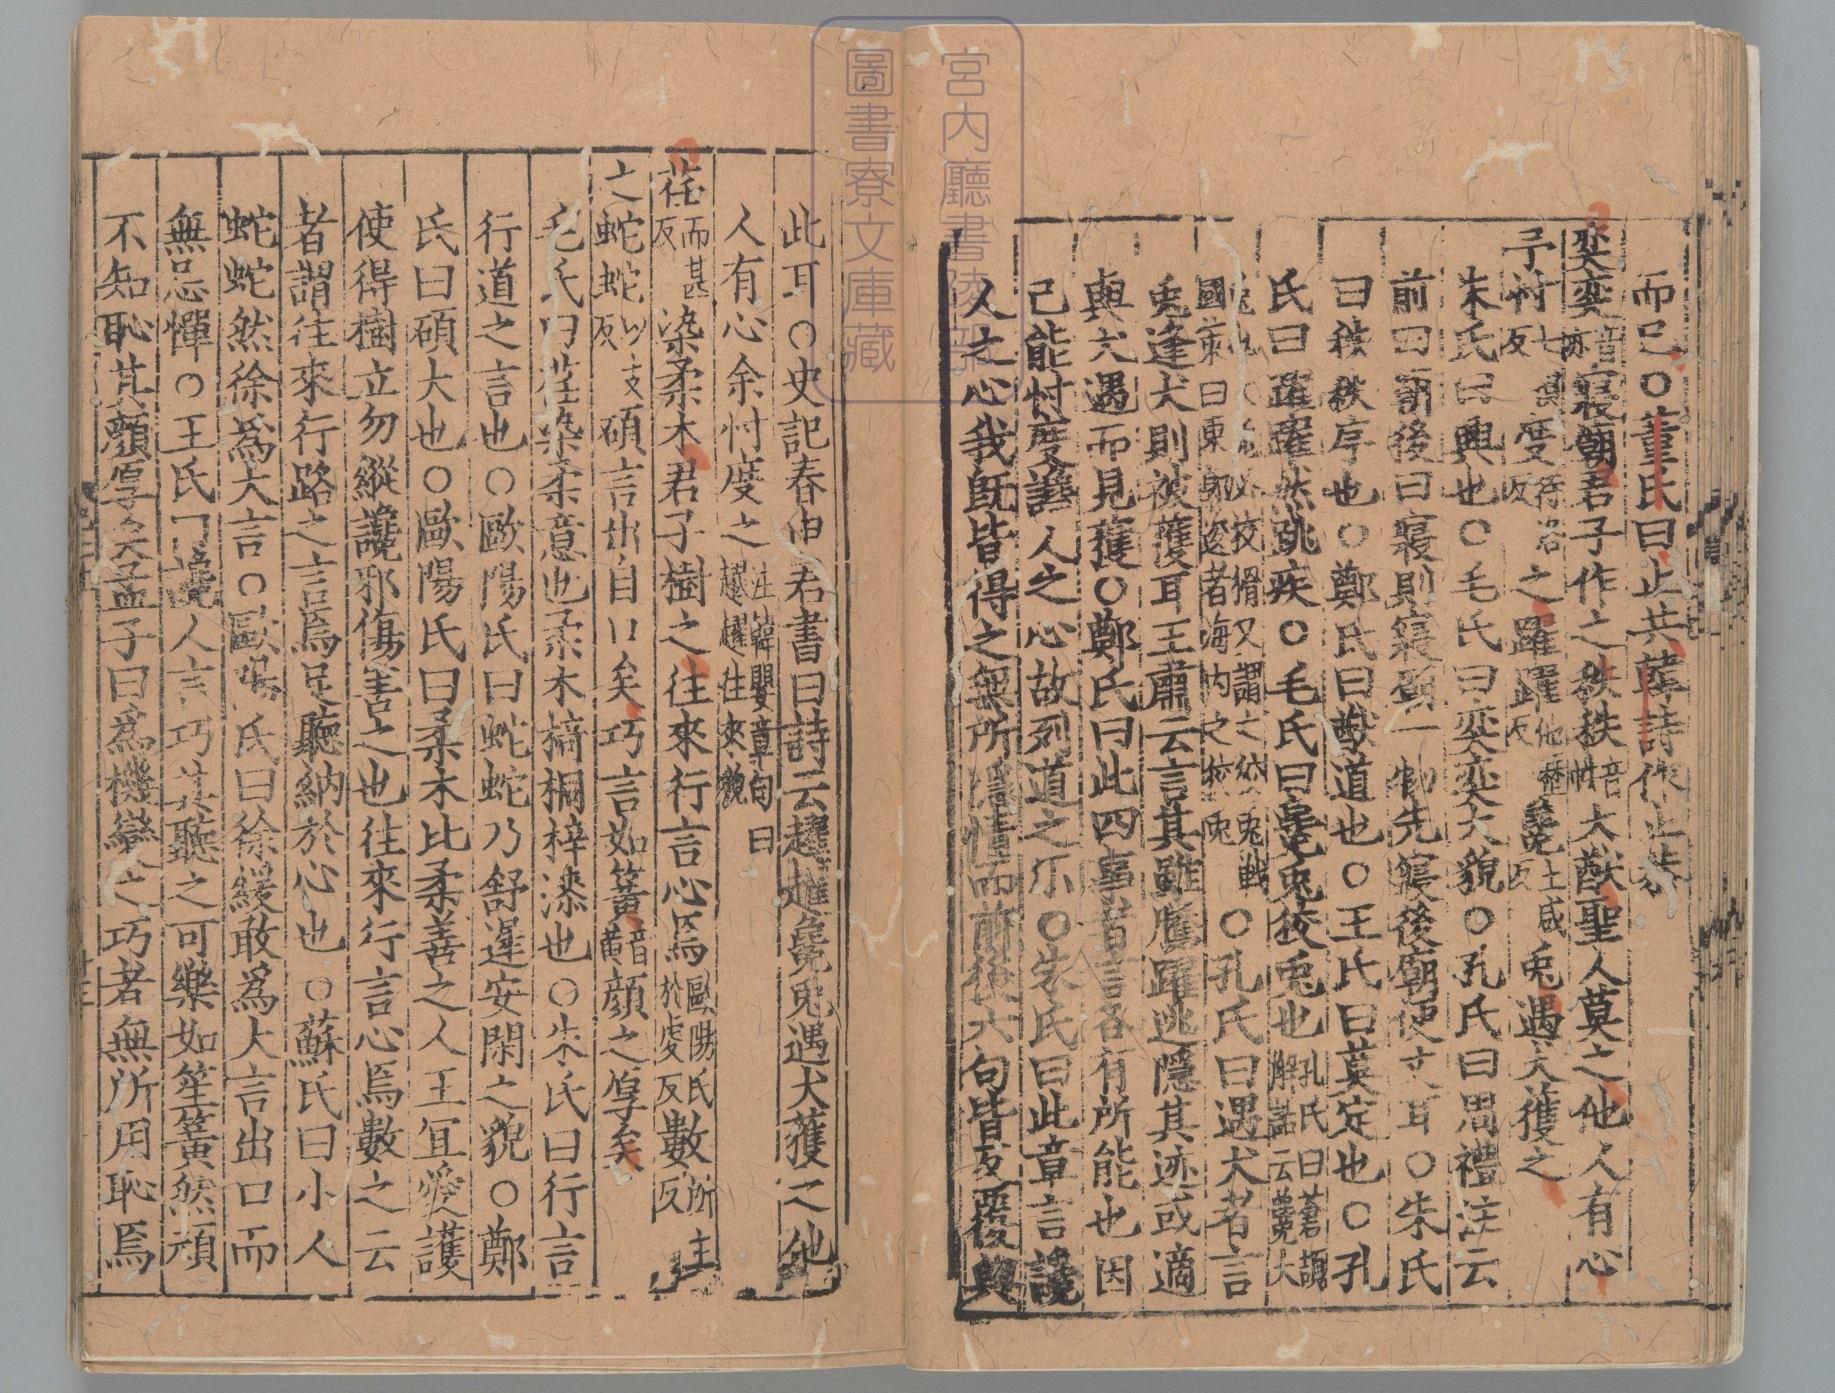 而已○董氏曰止共韓詩作止恭
奕奕音亦寢廟君子作之秩秩音帙大猷聖人莫之他人有心
予忖七損反度待洛反之躍躍他歷反毚士咸反兔遇犬獲之
朱氏曰興也○毛氏曰奕奕大貌○孔氏曰周禮注云
前曰廟後曰寢則寢廟一物先寢後廟便文耳○朱氏
曰秩秩序也○鄭氏曰猷道也○王氏曰莫定也○孔
氏曰躍躍然跳疾○毛氏曰毚兔狡兔也孔氏曰蒼頡解詁云毚大
兔也大兔必狡猾又謂之狡兔戰國策曰東郭逡者海內之狡兔○孔氏曰遇犬者言
兔逢犬則被獲耳王肅云言其雖騰躍逃隱其迹或適
與犬遇而見獲○鄭氏曰此四事者言各有所能也因
己能忖度讒人之心故列道之尓○朱氏曰此章言讒
人之心我旣皆得之無所隱情而前後六句皆反覆興
此耳○史記春申君書曰詩云趯趯毚兔遇犬獲之他
人有心余忖度之注韓嬰章句曰趯趯往來貌
荏而甚反染柔木君子樹之往來行言心焉歐陽氏於虔反數所主反
之蛇蛇以支反碩言出自口矣巧言如簧音黃顏之厚矣
毛氏曰荏染柔意也柔木椅桐梓漆也○朱氏曰行言
行道之言也○歐陽氏曰蛇蛇乃舒遲安閑之貌○鄭
氏曰碩大也○歐陽氏曰柔木比柔善之人王宜愛護
使得樹立勿縱讒邪傷害之也往來行言心焉數之云
者謂往來行路之言焉足聽納於心也○蘇氏曰小人
蛇蛇然徐爲大言○歐陽氏曰徐緩敢爲大言出口而
無忌憚○王氏曰讒人言巧其聽之可樂如笙簧然頑
不知恥其顏厚矣孟子曰爲機變之巧者無所用恥焉
宮內廳書陵部
圖書寮文庫藏